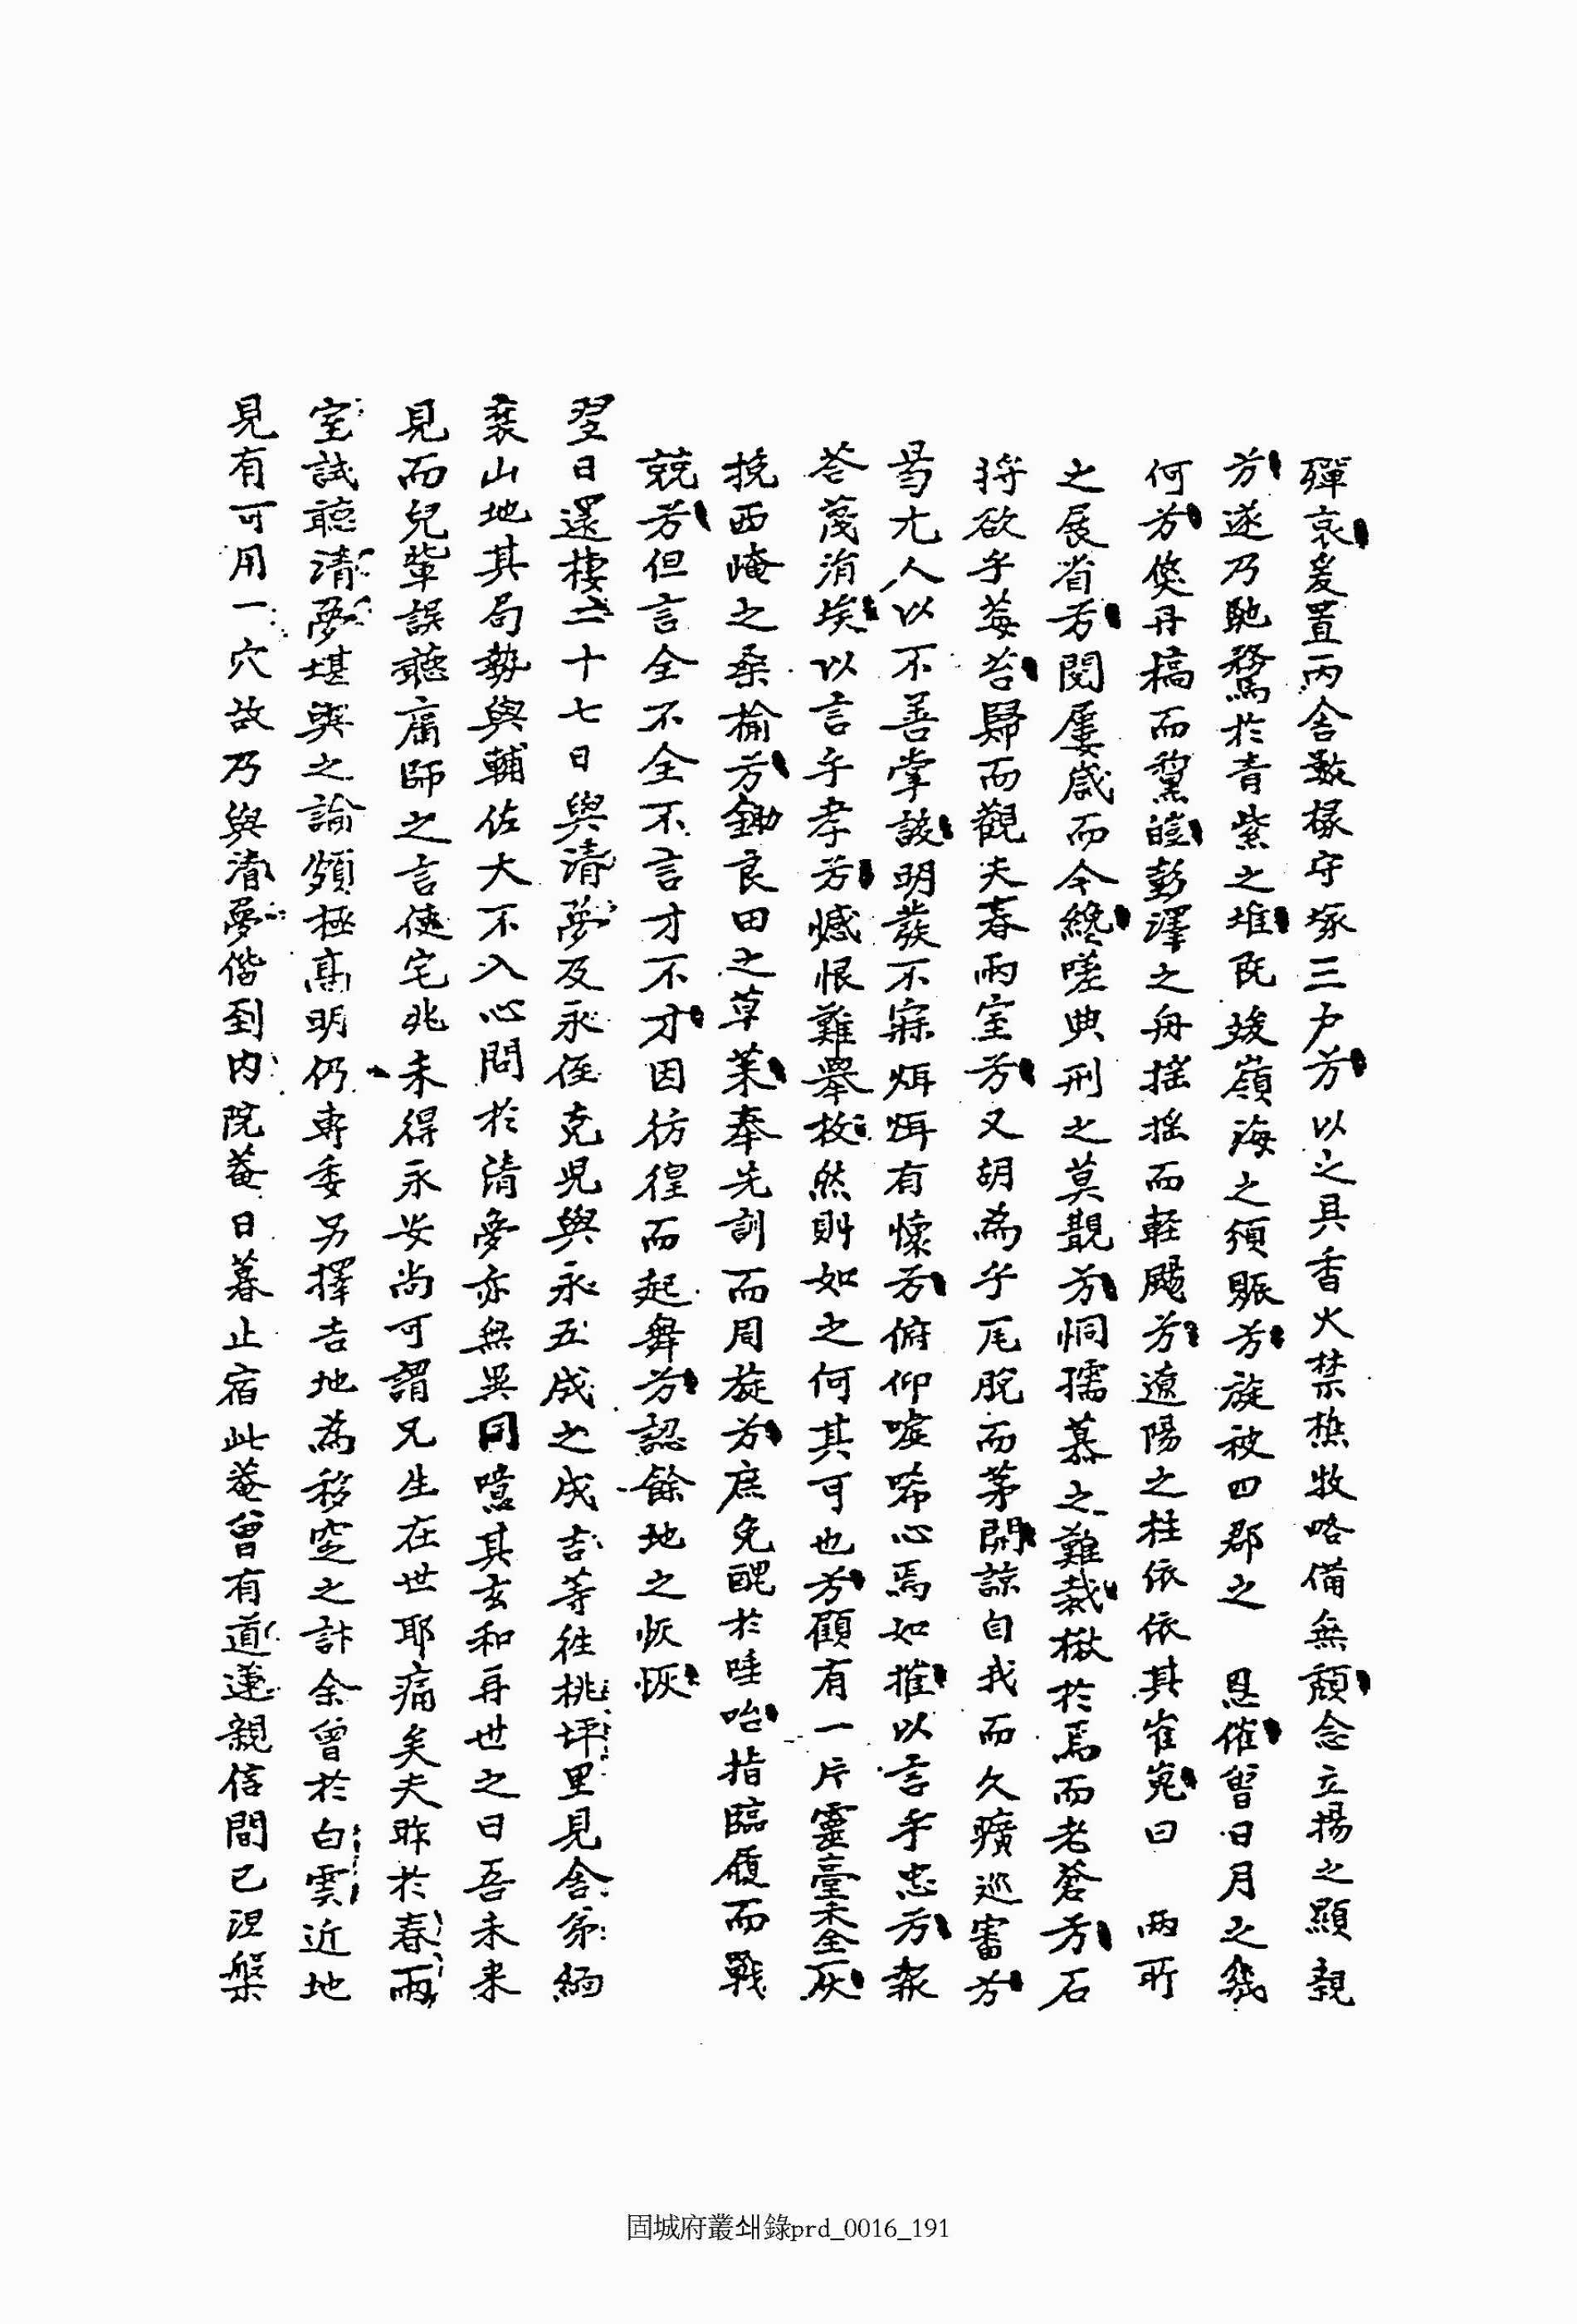 殫哀爰置丙舍數椽守塚三戶芳以之具香火禁樵牧略備無頹念立揚之顯親
芳遂乃馳騖於青紫之堆旣竣嶺海之須賑芳旋被四郡之 恩催曾日月之幾
何芳倏丹槁而黧皚彭澤之舟搖搖而輕颺芳遼陽之柱依依其崔嵬曰 兩所
之展省芳閔屢歲而今纔嗟典刑之莫覩芳恫孺慕之難裁楸於焉而老蒼芳石
將欲乎莓苔歸而觀夫春雨室芳又胡爲乎瓦脫而茅開諒自我而久癏巡審芳
曷尤人以不善掌該明發不寐炯炯有懷芳俯仰噓唏心焉如摧以言乎忠芳報
荅蔑涓埃以言乎孝芳憾恨難擧枚然則如之何其可也芳顧有一片靈臺未全灰
挽西崦之桑楡芳鋤良田之草萊奉先訓而周旋芳庶免醜於哇咍指臨履而戰
兢芳但言全不全不言才不才因彷徨而起舞芳認餘地之恢恢
翌日還棲二十七日與淸夢及永侄克兒與永五成之成吉等徃桃坪里見舍弟緬
襄山地其局勢與輔佐大不入心問於淸夢亦無異同噫其玄和再世之日吾未來
見而兒輩誤聽庸師之言使宅兆未得永安尚可謂兄生在世耶痛矣夫昨於春雨
室試聽淸夢堪輿之論頗極高明仍專委另擇吉地爲移窆之計余曾於白雲近地
見有可用一穴故乃與淸夢偕到內院菴日暮止宿此菴曾有道蓮親信間已涅槃
固城府叢쇄錄prd_0016_191